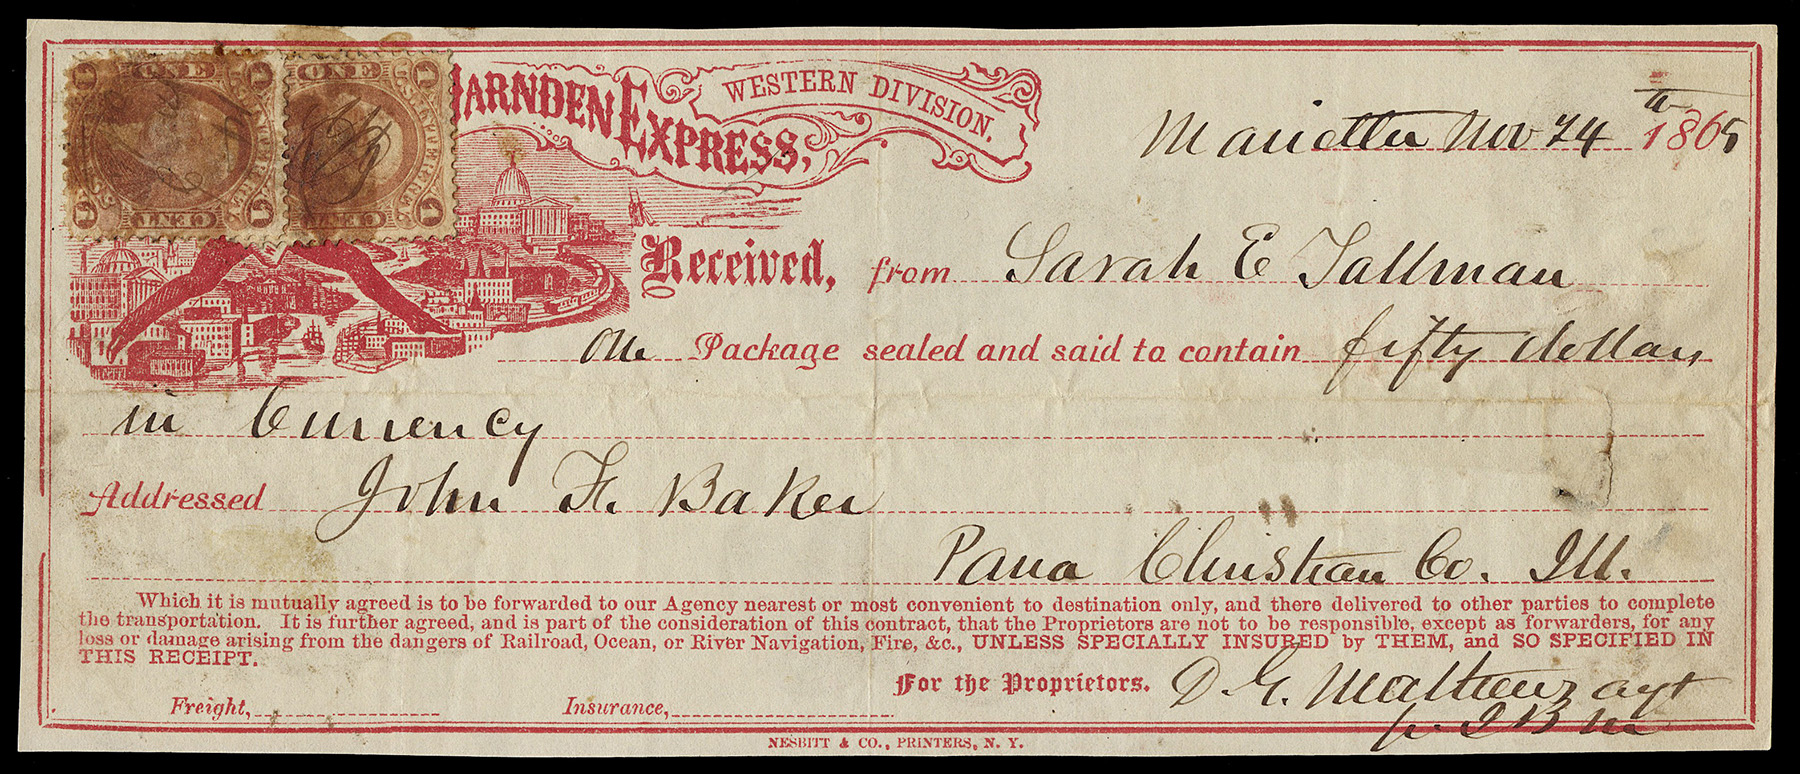 ONE 1 CENT 1
ONE 1 U.S. INTER. REV. CENT 1
HARNDEN EXPRESS,
WESTERN DIVISION.
Marietta Nov 24 1865
Received, from Sarah E Tallman
One Package sealed and said to contain fifty dollars
in Currency
Addressed John F. Baker
Pana Christian Co. Ill.
Which it is mutually agreed is to be forwarded to our Agency nearest or most convenient to destination only, and there delivered to other parties to complete
the transportation. It is further agreed, and is part of the consideration of this contract, that the Proprietors are not to be responsible, except as forwarders, for any
loss or damage arising from the dangers of Railroad, Ocean, or River Navigation, Fire, &c., UNLESS SPECIALLY INSURED by THEM, and SO SPECIFIED IN
THIS RECEIPT.
For the Proprietors. D. G. Mathews agt
Freight, Insurance,
NESBITT & CO., PRINTERS, N. Y.